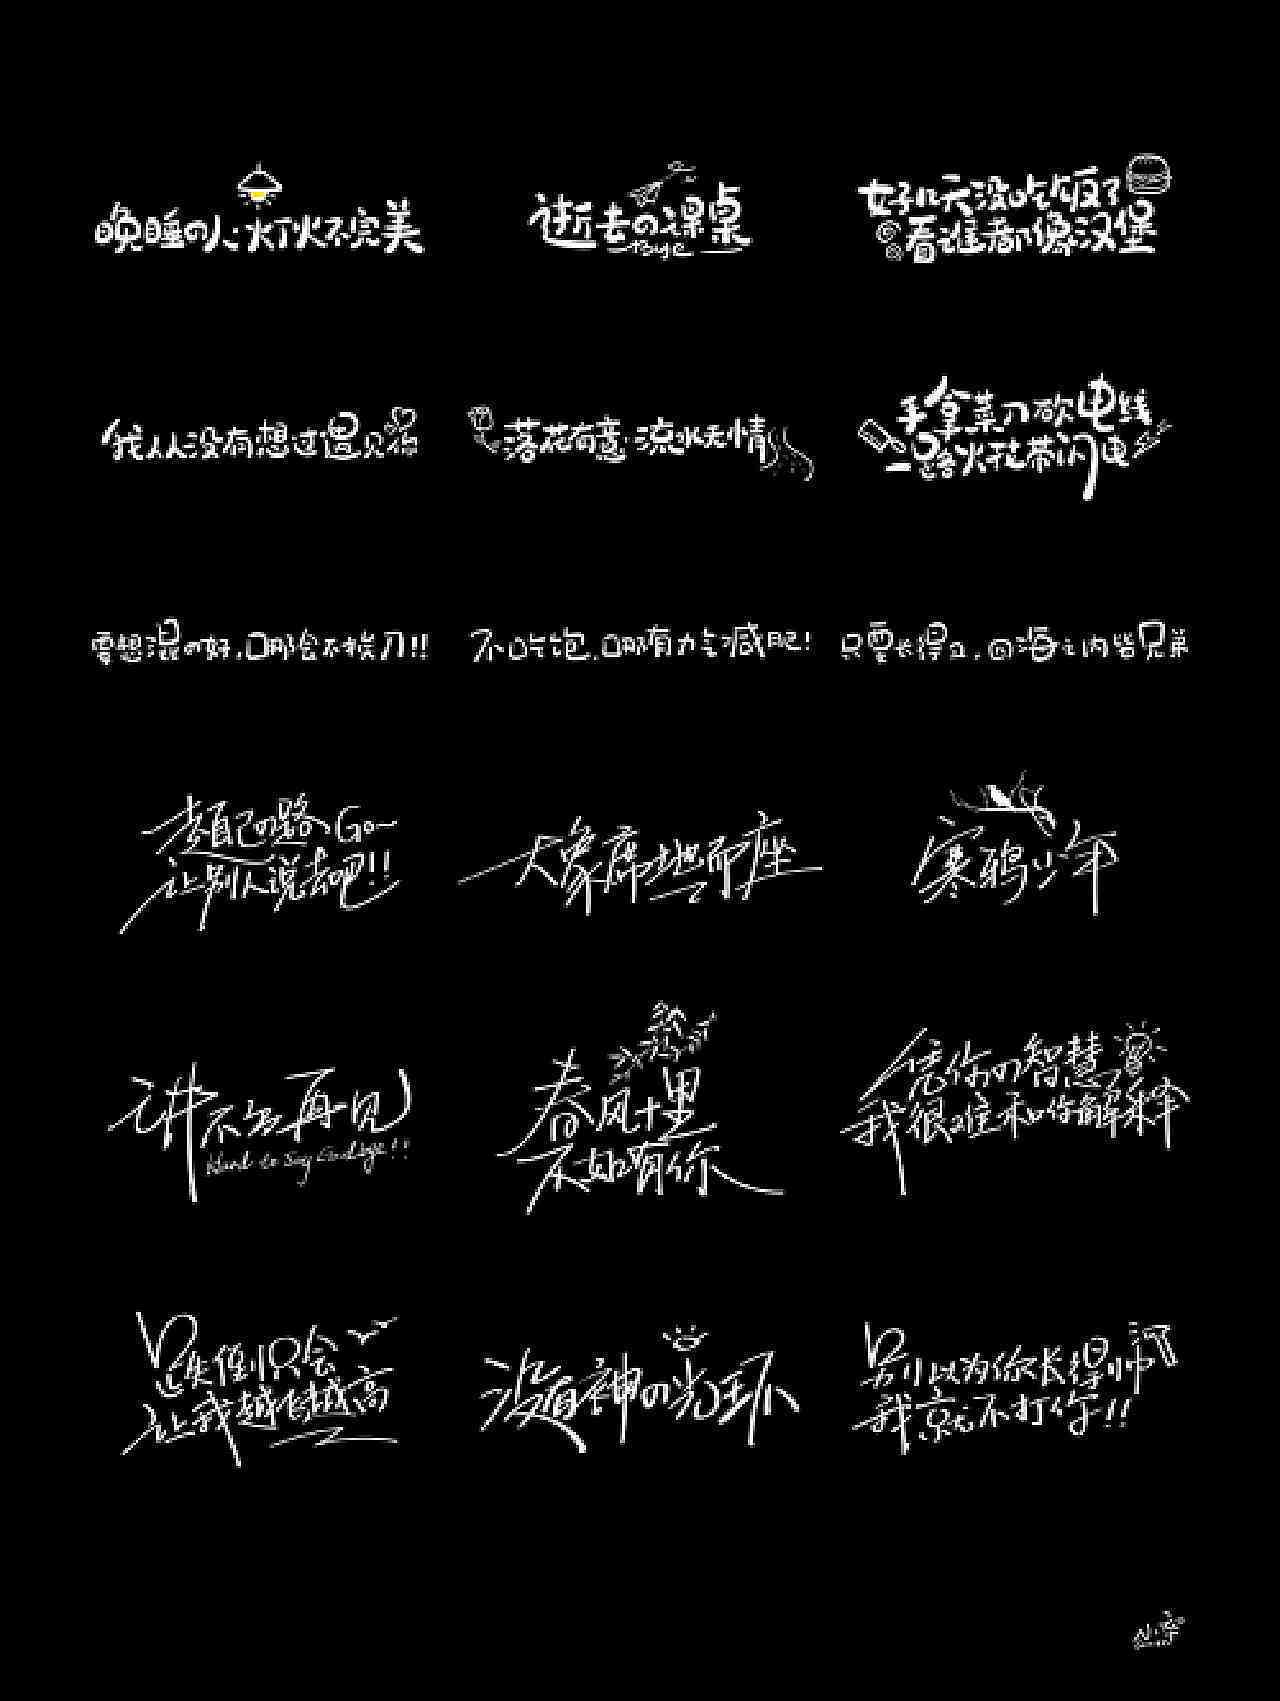 晚睡の人 灯火不完美
逝去の课桌
Page
好几天没吃饭了
看谁都像汉堡
我从没有想过遇见你
落花有意 流水无情
手拿菜刀砍电线
一路火花带闪电
要想混の好,哪会不挨刀!!
不吃饱,哪有力气减肥!
只要长得Q,四海之内皆兄弟
走自己の路 Go
让别人说去吧!!
大象席地而座
寒鸦少年
讲不出再见
Hard to Say Goodbye!!
春风十里
不如有你
凭你の智慧
我很难和你解释
跌倒只会
让我越长越高
没有神の光环
别以为你长得帅
我就不打你!!